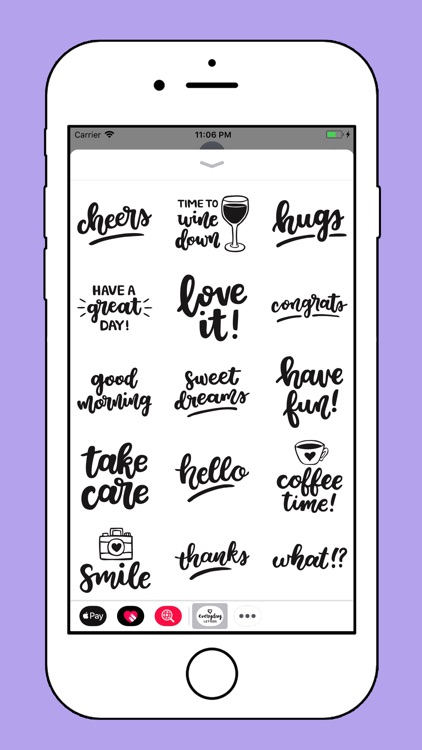 Carrier 11:06 PM
cheers
TIME TO
wine
down
hugs
HAVE A
great
DAY!
love
it!
congrats
good
morning
sweet
dreams
have
fun!
take
care
hello
coffee
time!
smile
thanks
what!?
Pay
everyday